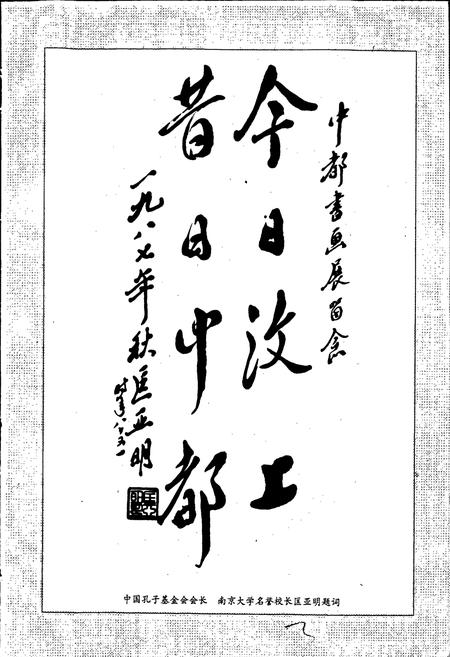 中都書画展留念
今日汶上
昔日中都
一九八七年秋匡亚明
中国孔子基金会会长 南京大学名誉校长匡亚明题词